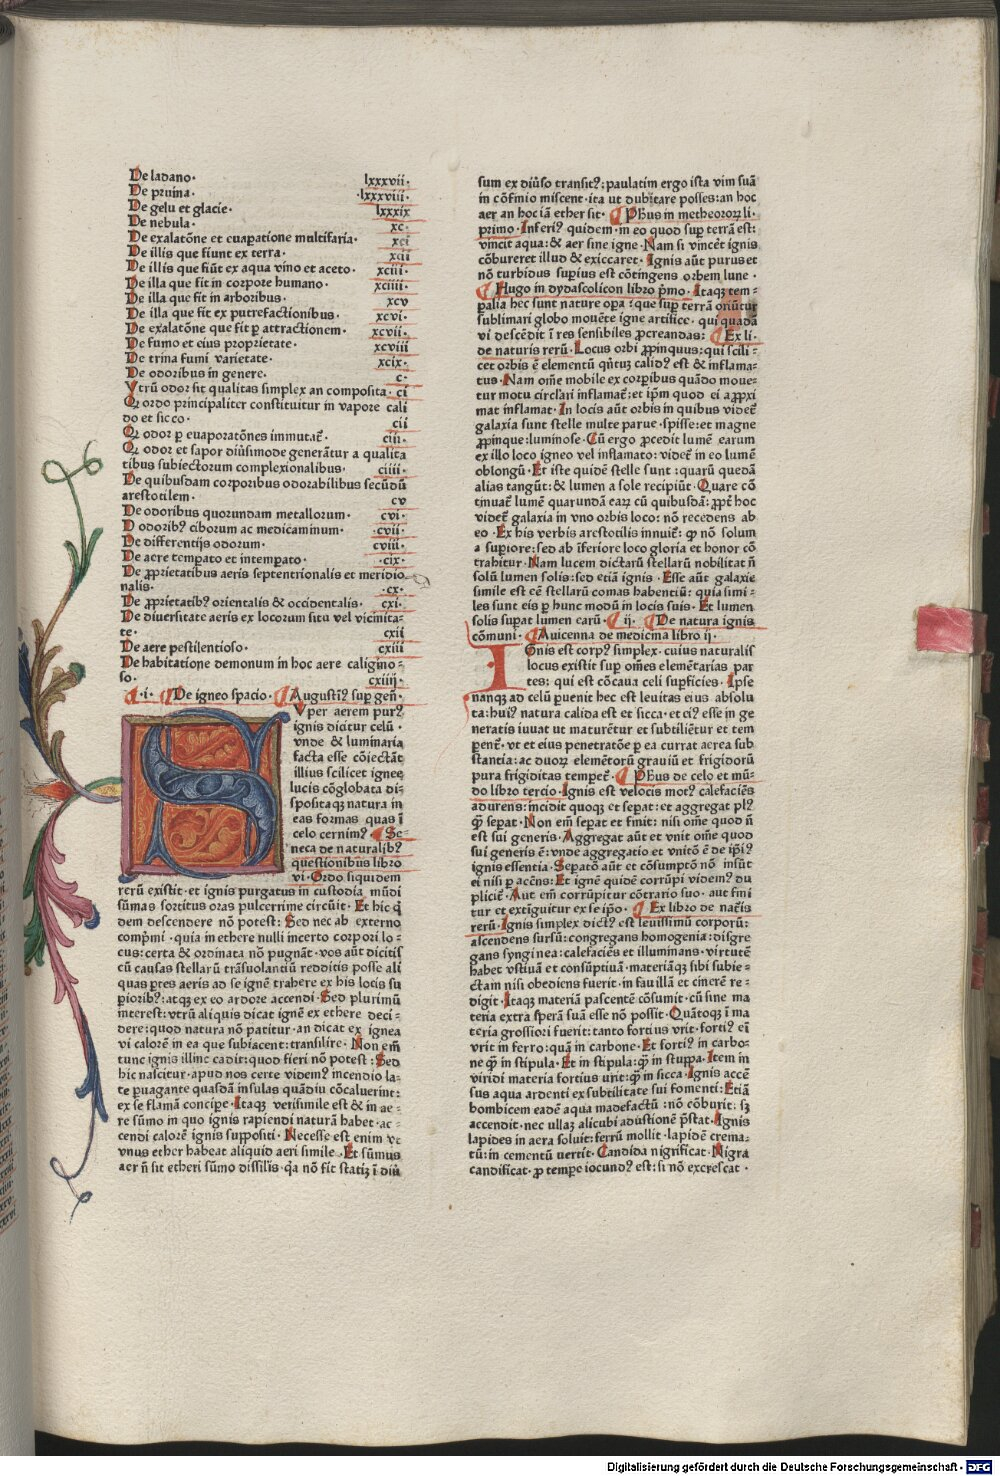 De ladano· lxxxvii·
De pruina· ·lxxxviii·
De gelu et glacie· lxxxix
De nebula· xc·
De exalatōne et euapatione multifaria· xci
De illis que fiunt ex terra· xcii
De illis que fiūt ex aqua vino et aceto· xciii·
De illa que fit in corpore humano· xciiii·
De illa que fit in arboribus· xcv
De illa que fit ex putrefactionibus· xcvi·
De exalatōne que fit ꝑ attractionem· xcvii·
De fumo et eius proprietate· xcviii
De trina fumi varietate· xcix·
De odoribus in genere· c·
Vtrū odor sit qualitas simplex an composita· ci
Qꝫ ordo principaliter constituitur in vapore cali
do et sicco· cii
Qꝫ odor ꝑ euaporatōnes immutat᷑· ciii·
Qꝫ odor et sapor diūsimode generātur a qualita
tibus subiectorum complexionalibus· ciiii·
De quibusdam corporibus odorabilibus secūdū
arestotilem· cv
De odoribus quorundam metallorum· cvi·
D odorib? ciborum ac medicaminum· ·cvii·
De differentijs odorum· cviii·
De aere temꝑato et intemꝑato· ·cix·
De ꝓprietatibus aeris septentrionalis et meridio
nalis· ·cx·
De ꝓprietatib? orientalis & occidentalis· cxi·
De diuersitate aeris ex locorum situ vel vicinita-
te· cxii
De aere pestilentioso· cxiii
De habitatione demonum in hoc aere caligino-
so· cxiiij·
·i· De igneo spacio· Augusti? suꝑ gen̄·
SVper aerem pur?
ignis dicitur celū·
vnde & luminaria
facta esse cōiectāt
illius scilicet ignee
lucis cōglobata di-
spositaqꝫ natura in
eas formas quas ī
celo cernim? Se-
neca de naturalib?
questionibus libro
vi· Ordo siquidem
rerū existit·et ignis purgatus in custodia mūdi
sūmas sortitus oras pulcerrime circūit· Et hic q̄
dem descendere nō potest: Sed nec ab externo
comp̄mi·quia in ethere nulli incerto corpori lo-
cus:certa & ordinata nō pugnāt·vos aūt dicitis
cū causas stellarū trāsuolantiū redditis posse ali
quas ꝑtes aeris ad se ignē trahere ex his locis su
ꝑiorib?:atqꝫ ex eo ardore accendi·Sed plurimū
interest:vtrū aliquis dicat ignē ex ethere deci-
dere:quod natura nō patitur·an dicat ex ignea
vi calorē in ea que subiacent:transilire· Non em̄
tunc ignis illinc cadit:quod fieri nō potest: Sed
hic nascitur·apud nos certe videm? incendio la-
te ꝑuagante quasdā insulas quādiu cōcaluerint:
ex se flamā concipe·Itaqꝫ verisimile est & in ae-
re sūmo in quo ignis rapiendi naturā habet·ac-
cendi calorē ignis supꝑositi·Necesse est enim vt
vnus ether habeat aliquid aeri simile·Et sūmus
aer n̄ sit etheri sūmo dissilis·q̄a nō fit statiꝫ ī diū
sum ex diūso transit?:paulatim ergo ista vim suā
in cōfinio miscent·ita ut dubitare posses:an hoc
aer an hoc iā ether sit· Ph̄us in metheoroꝝ li·
primo·Inferi? quidem·in eo quod suꝑ terrā est:
vincit aqua:& aer sine igne·Nam si vincēt ignis
cōbureret illud & exiccaret·Ignis aūt purus et
nō turbidus suꝑius est cōtingens orbem lune·
Hugo in dydascolicon libro p̄mo·Itaqꝫ tem-
ꝑalia hec sunt nature oꝑa:que suꝑ terrā oriūtur
sublimari globo mouēte igne artifice·qui quadā
vi descēdit ī res sensibiles ꝓcreandas: Ex li·
de naturis rerū·Locus orbi ꝓpinquus:qui scili-
cet orbis ē elementū qn̄tuꝫ calid? est & inflama-
tus·Nam om̄e mobile ex corꝑibus quādo moue-
tur motu circlari inflamat᷑:et ip̄m quod ei aꝓxi
mat inflamat·In locis aūt orbis in quibus videt᷑
galaxia sunt stelle multe parue·spisse:et magne
ꝓpinque:luminose·Cū ergo ꝓcedit lumē earum
ex illo loco igneo vel inflamato:videt᷑ in eo lumē
oblongū·Et iste quidē stelle sunt:quarū quedā
alias tangūt:& lumen a sole recipiūt·Quare cō
tinuat᷑ lumē quarundā earꝫ cū quibusdā:ꝓpt᷑ hoc
videt᷑ galaxia in vno orbis loco:nō recedens ab
eo·Ex his verbis arestotilis innuit᷑:ꝙ nō solum
a suꝑiore:sed ab īferiore loco gloria et honor cō
trahitur·Nam lucem dictarū stellarū nobilitat n̄
solū lumen solis:sed etiā ignis·Esse aūt galaxie
simile est cē stellarū comas habentiū:quia simi-
les sunt eis ꝑ hunc modū in locis suis·Et lumen
solis suꝑat lumen earū· ii· De natura ignis
cōmuni· Auicenna de medicina libro ii·
IGnis est corp? simplex·cuius naturalis
locus existit suꝑ om̄es elemētarias par
tes:qui est cōcaua celi suꝑficies·Ipse
nanqꝫ ad celū ꝑuenit hec est leuitas eius absolu
ta:hui? natura calida est et sicca·et ci? esse in ge
neratis iuuat ut maturētur et subtiliētur et tem
ꝑent᷑·vt et eius penetratōe ꝑ ea currat aerea sub
stantia:ac duoꝝ elemētorū grauiū et frigidorū
pura frigiditas temꝑet᷑· Ph̄us de celo et mū-
do libro tercio·Ignis est velocis mot? calefaciēs
adurens:incidit quoqꝫ et seꝑat:et aggregat pl?
ꝙ̄ seꝑat·Non em̄ seꝑat et finit:nisi om̄e quod n̄
est sui generis·Aggregat aūt et vnit om̄e quod
sui generis ē:vnde aggregatio et vnitō ē de ip̄i?
ignis essentia·Seꝑatō aūt et cōsumptō nō insūt
ei nisi ꝑ acn̄s:Et ignē quidē corrūpi videm? du
plicit᷑·Aut em̄ corrūpitur cōtrario suo·aut fini
tur et extīguitur ex se ip̄o· Ex libro de nat᷑is
rerū·Ignis simplex dict? est leuissimū corporū:
ascendens sursū:congregans homogenia:disgre
gans synginea:calefaciēs et illuminans·virtutē
habet vstiuā et consūptiuā·materiāqꝫ sibi subie-
ctam nisi obediens fuerit·in fauillā et cinerē re-
digit·Itaqꝫ materiā pascentē cōsumit·cū sine ma
teria extra sperā suā esse nō possit·Quātoqꝫ ī ma
teria grossiori fuerit:tanto fortius vrit·forti? ei
vrit in ferro:quā in carbone·Et forti? in carbo-
ne ꝙ̄ in stipula·Et in stipula:ꝙ̄ in stuppa·Item in
viridi materia fortius urit:ꝙ̄ in sicca·Ignis accē
sus aqua ardenti ex subtilitate sui fomenti:Etiā
bombicem eadē aqua madefactū:nō cōburit:sꝫ
accendit·nec ullaꝫ alicubi adustionē p̄stat·Ignis
lapides in aera soluit:ferrū mollit·lapidē crema-
tū:in cementū vertit·Candida nigrificat·Nigra
candificat·ꝓ temꝑe iocund? est:si nō excrescat·
Digitalisierung gefördert durch die Deutsche Forschungsgemeinschaft · DFG